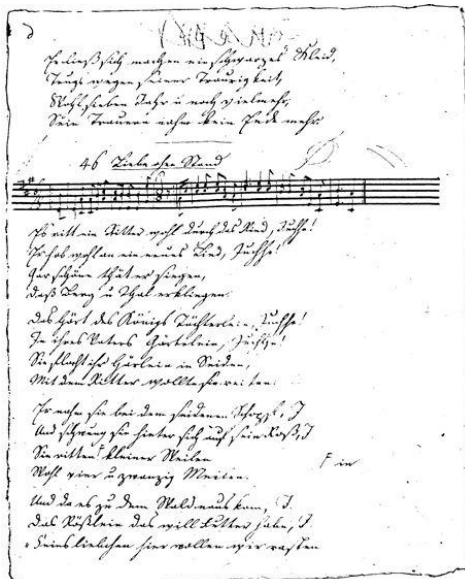 Er ließ sich machen ein schwarzes Kleid,
Trugs wegen seiner Traurigkeit,
Wohl sieben Jahr u noch vielmehr,
Sein Trauern nahm kein Ende mehr.
46 Liebe ohne Stand
Es ritt ein Ritter wohl durch das Ried, Juchhe!
Er hob wohl an ein neues Lied, Juchhe!
Gar schöne thät er singen,
daß Berg u Thal erklingen.
Das hört des Königs Töchterlein, Juchhe!
In ihres Vaters Gärtelein, Juchhe!
Sie flocht ihr Härlein in Seiden,
Mit dem Ritter wollte sie reiten.
Er nahm sie bei dem seidenen Schopf, J
Und schwung sie hinter sich auf sein Roß, J
Sie ritten kleiner Weilen
F in
Wohl vier u zwanzig Meilen.
Und da es zu dem Wald naus kam, J.
Das Rößlein das will Futter habe, J.
Feins liebchen hier wollen wir rasten